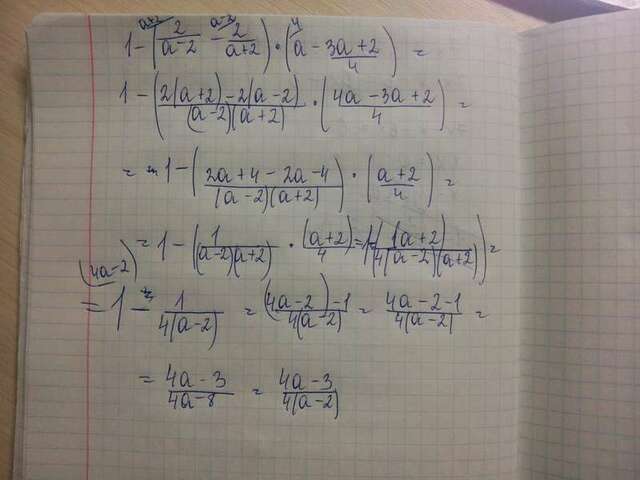 a+2 a-2 4
1 - (2/(a-2) - 2/(a+2)) · (a - (3a+2)/4) =
1 - (2(a+2)-2(a-2))/((a-2)(a+2)) · ((4a-3a+2)/4) =
= 1 - ((2a+4-2a-4)/((a-2)(a+2))) · ((a+2)/4) =
= 1 - (1/((a-2)(a+2))) · (a+2)/4 = 1 - ((1(a+2))/(4(a-2)(a+2))) =
(4a-2)
= 1 - 1/(4(a-2)) = ((4a-2)-1)/(4(a-2)) = (4a-2-1)/(4(a-2)) =
= (4a-3)/(4a-8) = (4a-3)/(4(a-2))